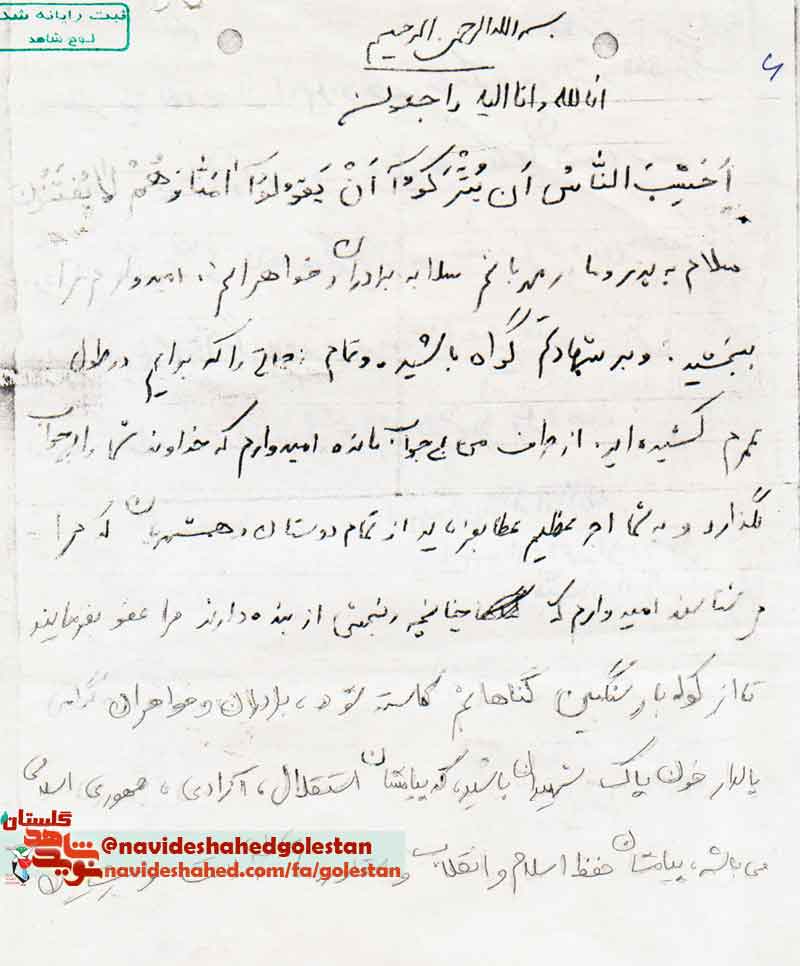 ثبت رایانه شد
لوح شاهد
۶
بسم الله الرحمن الرحیم
انا لله و انا الیه راجعون
اَحَسِبَ النّاسُ اَن یُتْرَکُوۤا اَنْ یَقُولُوۤا امَنّا وَ هُمْ لا یُفتَنُون
سلام به پدر و مادر مهربانم سلام به برادران و خواهرانم امیدوارم مرا
ببخشید. و بر شهادتم گواه باشید. و تمام زحماتی را که برایم در طول
عمرم کشیده اید. از طرف من بی جواب مانده امیدوارم که خداوند شما را بی جواب
نگذارد و به شما اجر عظیم عطا بفرماید از تمام دوستان و همشهریان که مرا
می شناسند امیدوارم که چنانچه رنجشی از بنده دارند مرا عفو بفرمایند
تا از کوله بار سنگین گناهانم کاسته شود، برادران و خواهران گرامی
پاسدار خون پاک شهیدان باشید، که پیامشان استقلال، آزادی، جمهوری اسلامی
می باشد، پیامشان حفظ اسلام و انقلاب و
نوید شاهد گلستان
@navideshahedgolestan
navideshahed.com/fa/golestan